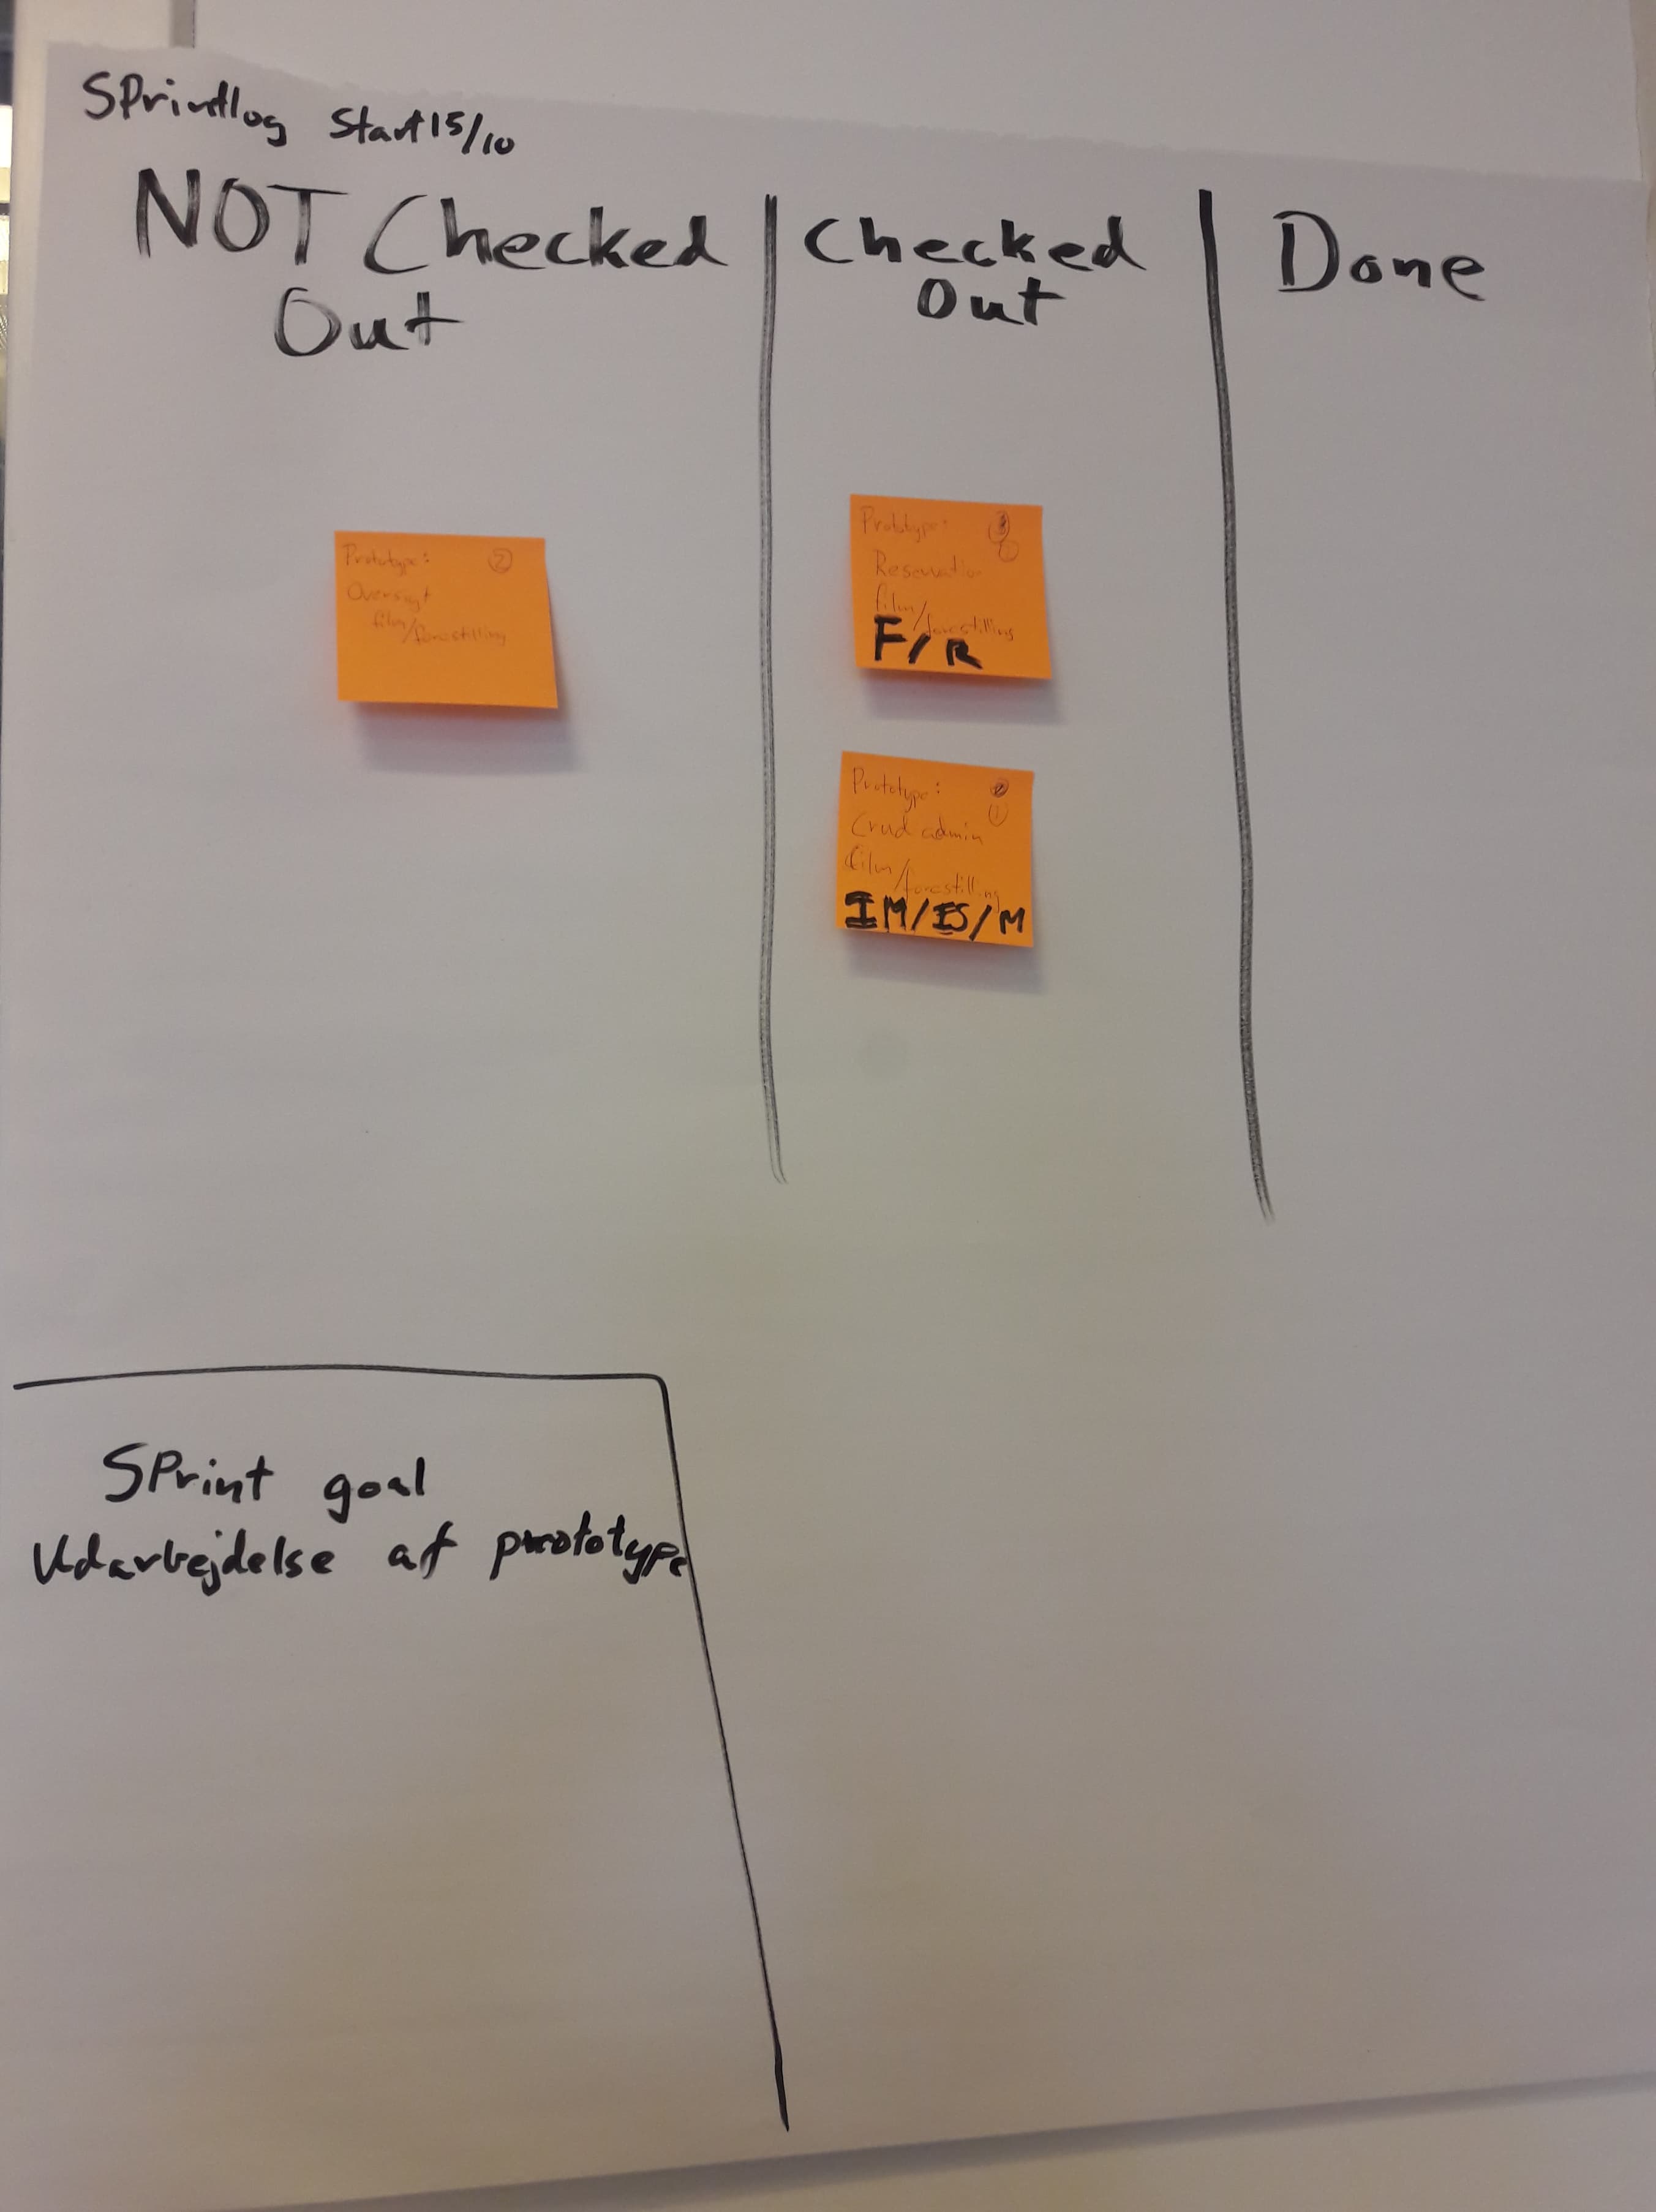 SPrintlog Start 15/10
NOT Checked
Out
Checked
Out
Done
Prototype: 2
Oversigt
film/forestilling
Prototype:
Reservation
film/forestilling
F/R
Prototype:
1
Crud admin
film/forestilling
IM/ES/M
SPrint goal
Udarbejdelse af prototype